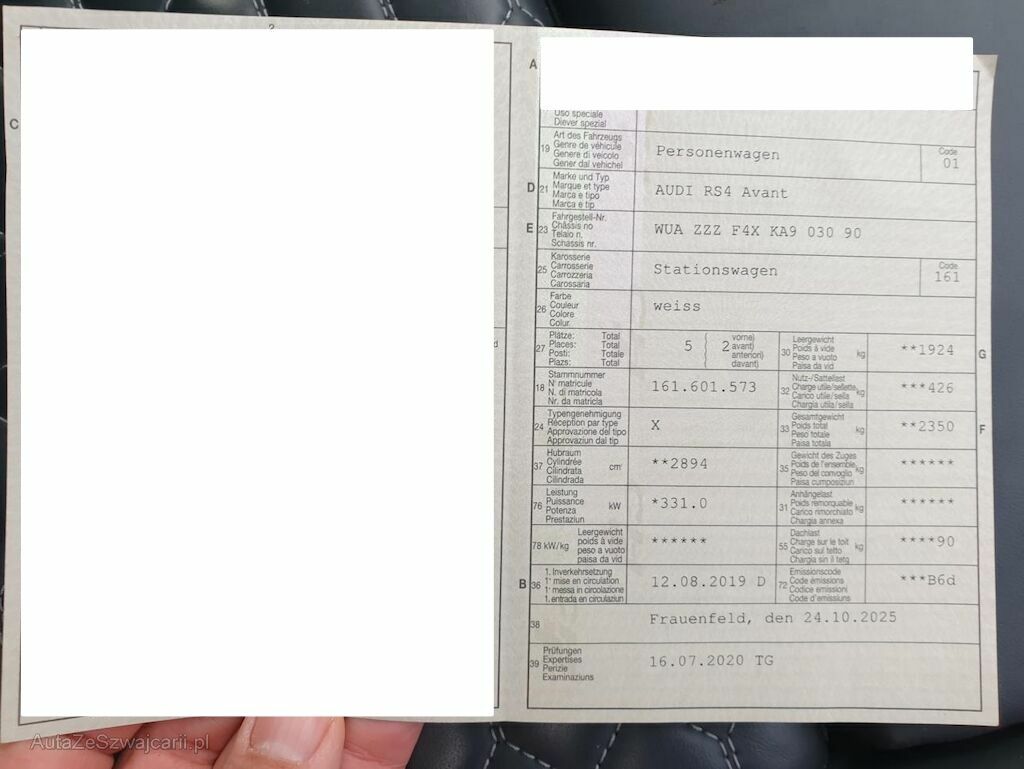 2
C
A
Uso speciale
Diever spezial
19
Art des Fahrzeugs
Genre de véhicule
Genere di veicolo
Gener dal vehichel
Personenwagen
Code
01
D
21
Marke und Typ
Marque et type
Marca e tipo
Marca e tip
AUDI RS4 Avant
E
23
Fahrgestell-Nr.
Châssis no
Telaio n.
Schassis nr.
WUA ZZZ F4X KA9 030 90
25
Karosserie
Carrosserie
Carrozzeria
Carossaria
Stationswagen
Code
161
26
Farbe
Couleur
Colore
Colur
weiss
27
Plätze: Total
Places: Total
Posti: Totale
Plazs: Total
5 ( 2 vorne)
( avant)
( anteriori)
( davant)
30
Leergewicht
Poids à vide
Peso a vuoto
Paisa da vid
kg
**1924
G
18
Stammnummer
N° matricule
N. di matricola
Nr. da matricla
161.601.573
32
Nutz-/Sattellast
Charge utile/sellette
Carico utile/sella
Chargia utila/sella
kg
***426
24
Typengenehmigung
Réception par type
Approvazione del tipo
Approvaziun dal tip
X
33
Gesamtgewicht
Poids total
Peso totale
Paisa totala
kg
**2350
F
37
Hubraum
Cylindrée
Cilindrata
Cilindrada
cm³
**2894
35
Gewicht des Zuges
Poids de l'ensemble
Peso del convoglio
Paisa cumposiziun
kg
******
76
Leistung
Puissance
Potenza
Prestaziun
kW
*331.0
31
Anhängelast
Poids remorquable
Carico rimorchiato
Chargia annexa
kg
******
78 kW/kg
Leergewicht
poids à vide
peso a vuoto
paisa da vid
******
55
Dachlast
Charge sur le toit
Carico sul tetto
Chargia sin il tetg
kg
****90
B
36
1. Inverkehrsetzung
1re mise en circulation
1a messa in circolazione
1. entrada en circulaziun
12.08.2019 D
72
Emissionscode
Code émissions
Codice emissioni
Code d'emissiuns
***B6d
38
Frauenfeld, den 24.10.2025
39
Prüfungen
Expertises
Perizie
Examinaziuns
16.07.2020 TG
AutaZeSzwajcarii.pl